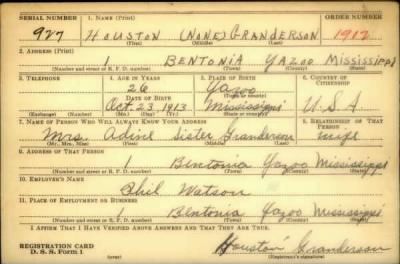 SERIAL NUMBER 1. NAME (Print) ORDER NUMBER
927 HOUSTON (NONE) GRANDERSON 1902
(First) (Middle) (Last)
2. ADDRESS (Print)
1 BENTONIA YAZOO Mississippi
(Number and street or R. F. D. number) (Town) (County) (State)
3. TELEPHONE 4. AGE IN YEARS 5. PLACE OF BIRTH 6. COUNTRY OF CITIZENSHIP
26 Yazoo
DATE OF BIRTH (Town or county)
Oct 23 1913 Mississippi U.S.A
(Exchange) (Number) (Mo.) (Day) (Yr.) (State or country)
7. NAME OF PERSON WHO WILL ALWAYS KNOW YOUR ADDRESS 8. RELATIONSHIP OF THAT PERSON
Mrs. Adine Sister Granderson wife
(Mr., Mrs., Miss) (First) (Middle) (Last)
9. ADDRESS OF THAT PERSON
1 Bentonia Yazoo Mississippi
(Number and street or R. F. D. number) (Town) (County) (State)
10. EMPLOYER'S NAME
Phil Watson
11. PLACE OF EMPLOYMENT OR BUSINESS
1 Bentonia Yazoo Mississippi
(Number and street or R. F. D. number) (Town) (County) (State)
I AFFIRM THAT I HAVE VERIFIED ABOVE ANSWERS AND THAT THEY ARE TRUE.
REGISTRATION CARD Houston Granderson
D. S. S. Form 1 (Registrant's signature)